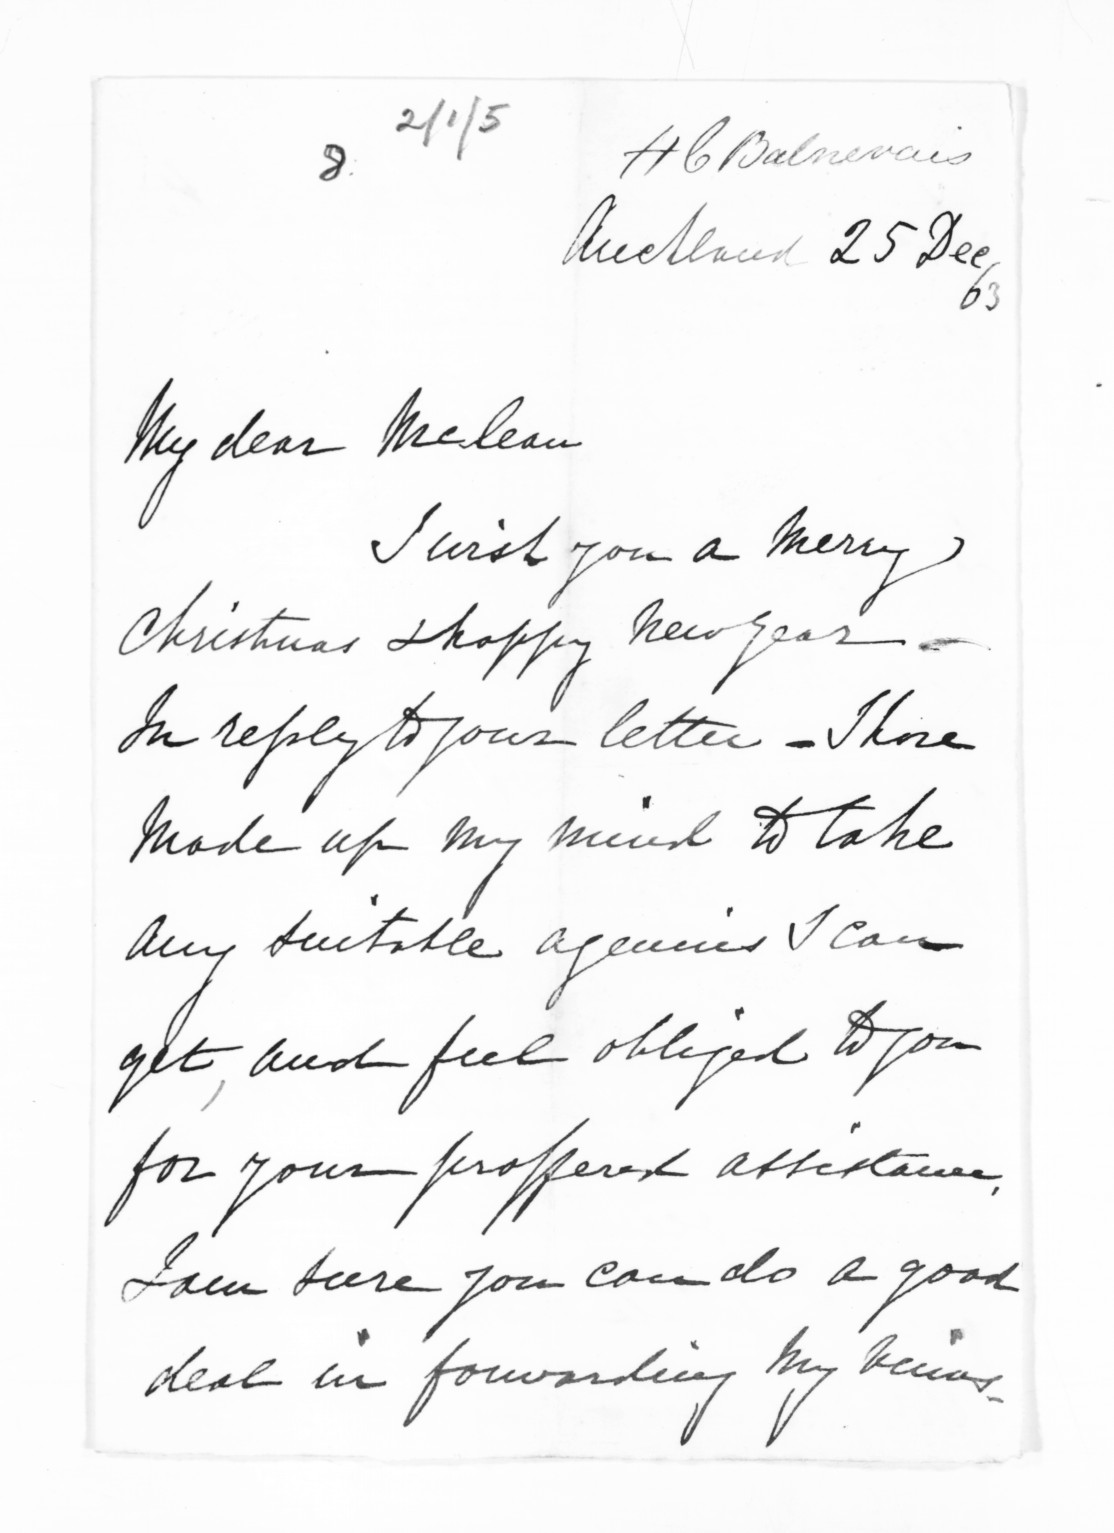 2/1/5
8.
H C Balnevais
Auckland 25 Dec
/63
My dear McLean
I wish you a Merry
Christmas & happy New Year -
In reply to your letter - I have
Made up my mind to take
any suitable agencies I can
get, and feel obliged to you
for your proffered assistance.
I am sure you can do a good
deal in forwarding my views -